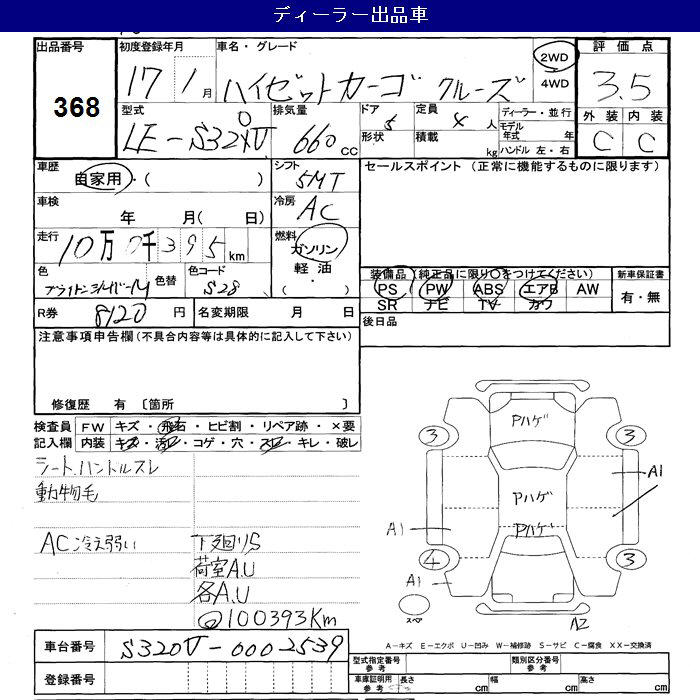 ディーラー出品車
出品番号
368
初度登録年月
17 1月
車名・グレード
ハイゼットカーゴ クルーズ
2WD
4WD
評価点
3.5
外装 内装
C C
型式
LE-S320V
排気量
660 cc
ドア 5
形状
定員 4 人
積載 kg
ディーラー・並行
モデル年式 年
ハンドル 左・右
車歴
自家用・( )
シフト
5MT
セールスポイント (正常に機能するものに限ります)
車検
年 月( 日)
冷房
AC
走行
10万0千395km
燃料
ガソリン
軽油
( ・ )
色
色替
色コード
S28
装備品(純正品に限り○をつけてください)
PS PW ABS エアB AW
SR ナビ TV カワ
新車保証書
有・無
R券 8120 円
名変期限 月 日
後日品
注意事項申告欄(不具合内容等は具体的に記入して下さい)
修復歴 有 〔箇所 〕
検査員記入欄
FW キズ・飛石・ヒビ割・リペア跡・×要
内装 キズ・汚レ・コゲ・穴・スレ・キレ・破レ
シート、ハンドルスレ
動物毛
AC冷え弱い
下廻りS
荷室A.U
各A.U
100393Km
Pハゲ
3 3
A1
Pハゲ
Pハゲ
A1
4 3
A1
スペア
A2
A-キズ E-エクボ U-凹み W-補修跡 S-サビ C-腐食 XX-交換済
車台番号 S320V-0002539
登録番号
型式指定番号 参考
類別区分番号 参考
車庫証明用 参考 長さ cm 幅 cm 高さ cm